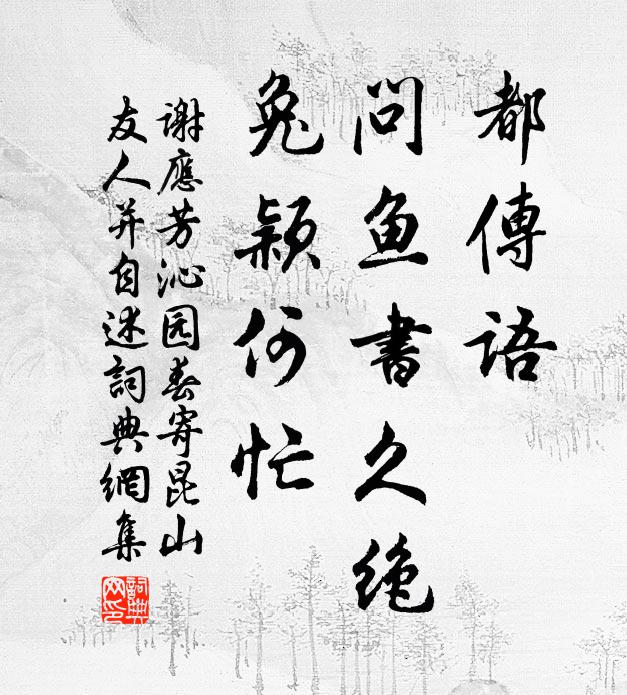 都傳語
問魚書久絶
兔颖何忙
谢應芳沁园春寄昆山
友人并自述詞典網集